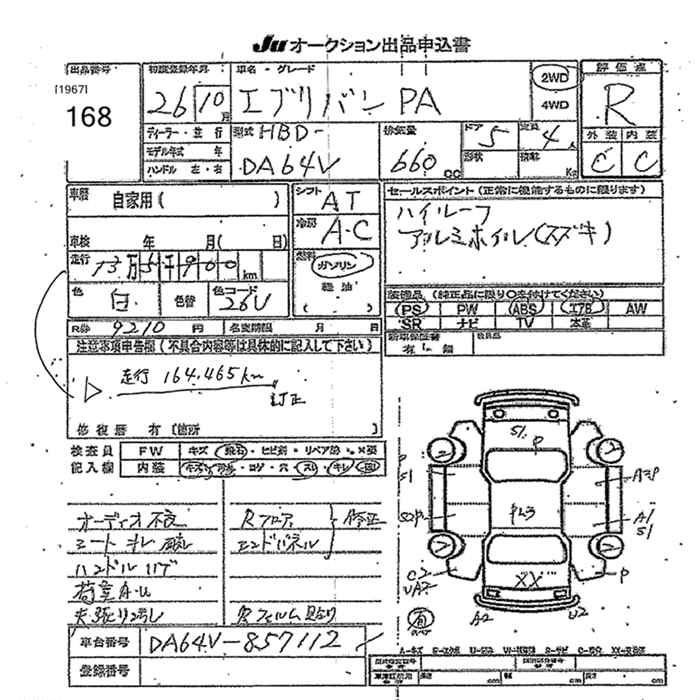 Ju オークション出品申込書
出品番号
[1967]
168
初度登録年月
26 10月
車名・グレード
エブリバン PA
2WD
4WD
評価点
R
外装 内装
C C
ディーラー・並行
モデル年式 年
ハンドル 左・右
型式 HBD-
DA64V
排気量
660cc
ドア 5
形状
定員 4人
積載 Kg
車歴 自家用( )
車検 年 月( 日)
走行 13万5千900km
色 白
色替
色コード 26V
シフト AT
冷房 A・C
燃料
ガソリン
軽油
( )
セールスポイント(正常に機能するものに限ります)
ハイルーフ
アルミホイル(スズキ)
装備品(純正品に限り○を付けてください)
PS PW ABS エアB AW
SR ナビ TV 本革
新車保証書
有・無
R券 9210円
名変期限 月 日
注意事項申告欄(不具合内容等は具体的に記入して下さい)
走行 164,465km
訂正
修復歴 有(箇所 )
検査員
記入欄
FW
内装
オーディオ不良
シート キレ
ハンドル
Rフロア
エンドパネル
修正
荷室A・U
天張り汚れ
Rフィルム貼り
車台番号 DA64V-857112
登録番号
S1
P
P
S1
A3P
PL3
A1
S1
XX
C2
UA2
P
A2
U2
有
cm
cm
cm